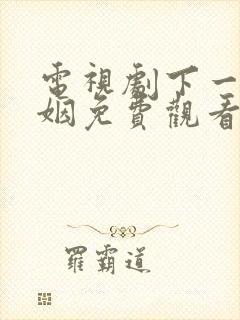 電視劇下一
姻免費觀看
羅霸道